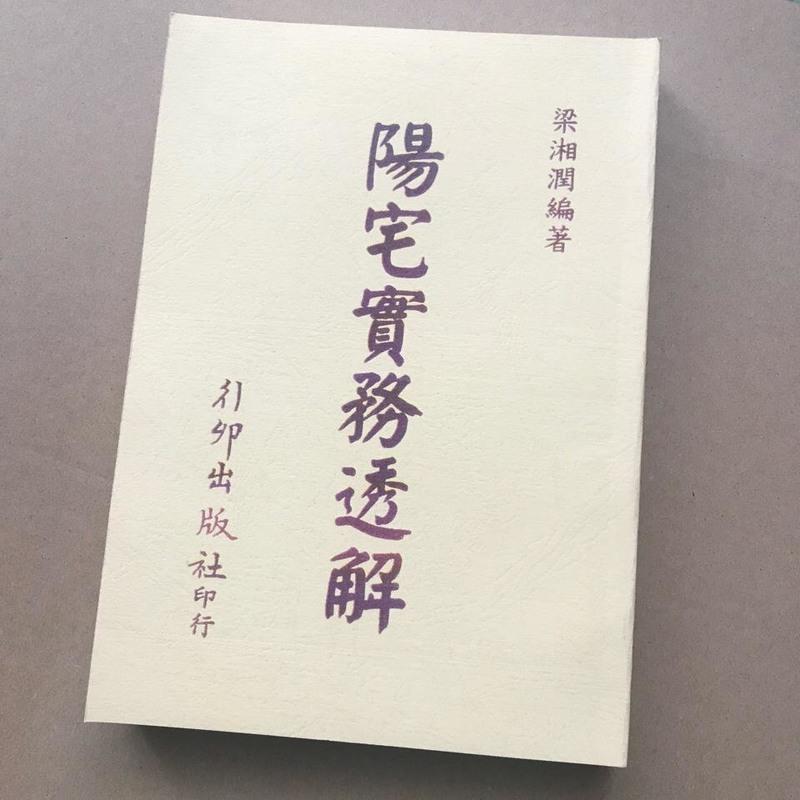 梁湘潤編著
陽宅實務透解
行卯出版社印行